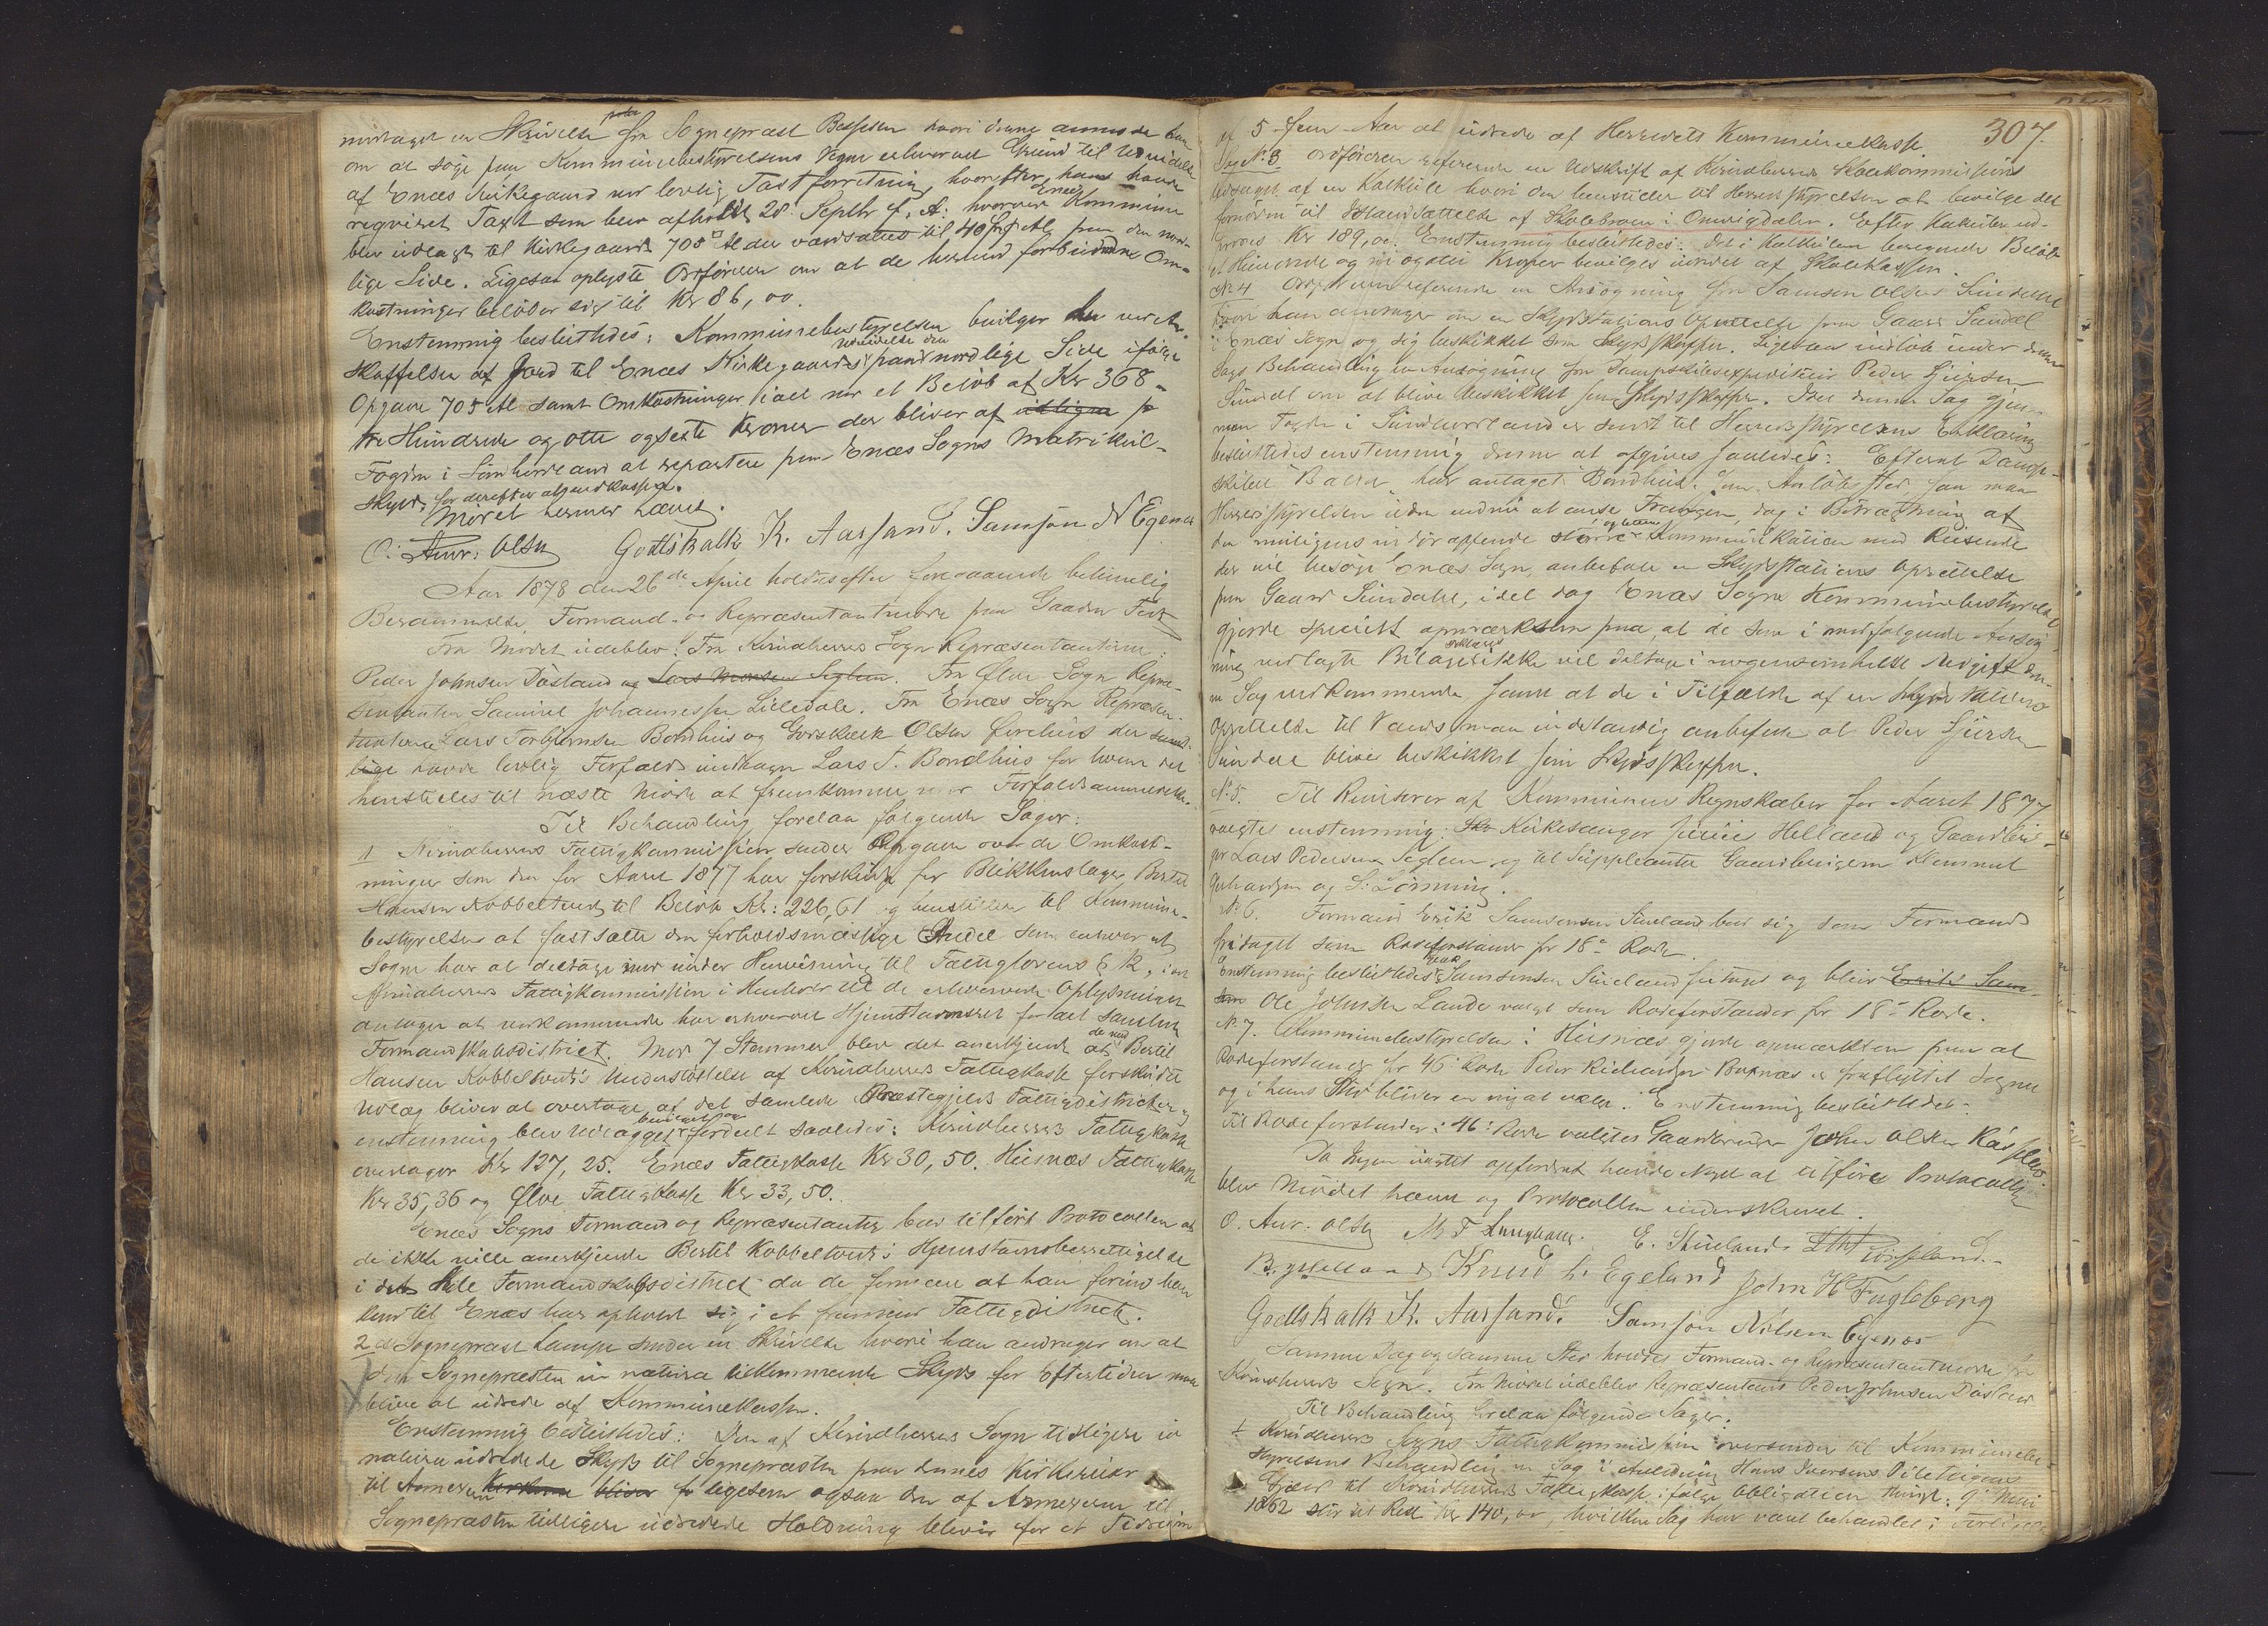 modtaget en Skrivelse fra Sognepræst hvori denne anmoder ham
om at søge paa Kommunebestyrelsens Vegne erhvervet Grund til Udvidelse
af Enæs Kirkegaard ved lovlig Taxtforretning, hvorefter han havde
reqvireret Taxt som blev afholdt 28 Septbr f. A: hvorved Enæs Kommune
blev udlagt til Kirkegaard 705 □ Al der værdsattes til 40 pr □ Al, paa den nord-
lige Side. Ligesaa oplyste Ordføreren om at de herved forbundne Om-
kostninger beløber sig til Kr 86,00.
Enstemmig besluttedes: Kommunebestyrelsen bevilger
skaffelse af Jord til Enæs Kirkegaards Udvidelse paa den nordlige Side ifølge
Opgave 705 □ Al samt Omkostninger i alt med et Beløb af Kr 368 -
tre Hundrede og otte og sexti Kroner der bliver af udligne
Fogden i Søndhordland at repartere paa Enæs Sogns Matrikul-
skyld, for derefter at
Mødet dermed hævet.
O: Andr: Olsen Gottskalk K. Aarsand. Samson N Egenes
Aar 1878 den 26de April holdtes efter foregaaende betimelig
Berammelse Formand- og Repræsentantmøde paa Gaarden Feet
Fra Mødet udeblev: Fra Kvindherreds Sogn Repræsentanterne:
Peder Johnsen Døsland og Lars Monsen Seglem. Fra Ølve Sogn Repræ-
sentanten Samuel Johannessen Lilledale. Fra Enæs Sogn Repræsen-
tanterne Lars Torbjørnsen Bondhus og Gotskalk Olsen der samt-
lige havde lovlig Forfald undtagen Lars T. Bondhus for hvem det
henstilles til næste Møde at fremkomme med Forfaldsanmeldelse.
Til Behandling forelaa følgende Sager:
1 Kvindherreds Fattigkommission sender Opgave over de Omkost-
ninger som den for Aaret 1877 har forskudt for Blikkenslager Bertel
Hansen Kobbeltvedt til Beløb Kr: 226,61 og henstiller til Kommune-
bestyrelsen at fastsætte den forholdsmæssige Andel som enhver af
Sogne har at deltage med under Henvisning til Fattiglovens § 12, idet
Kvindherreds Fattigkommission i Henhold til de erhvervede Oplysninger
antager at vedkommende har erhvervet Hjemstavnsret for det samlede
Formandskabsdistrict. Mod 7 Stemmer blev det anerkjendt at de ved Bertel
Hansen Kobbeltvedt's Understøttelse af Kvindherreds Fattigkasse forskudte
Udlæg bliver at overtage af det samlede Præstegjelds Fattigdistricter og
enstemmig blev Udlægget bevilget og fordelt saaledes: Kvindherreds Fattigkasse
overtager Kr 127,25. Enæs Fattigkasse Kr 30,50. Husnæs Fattigkasse
Kr 35,36 og Ølve Fattigkasse Kr 33,50.
Enæs Sogns Formand og Repræsentanter bad tilført Protocollen at
de ikke ville anerkjende Bertel Kobbeltvedt's Hjemstavnsberettigelse
i det hele Formandskabsdistrict da de formene at han forinden han
kom til Enæs har opholdt sig i et fremmed Fattigdistrict.
2 Sognepræst Lampe sender en Skrivelse hvori han andrager om at
den Sognepræsten in natura tilkommende Skyds for Eftertiden maa
blive at udrede af Kommunekassen.
Enstemmig besluttedes: Den af Kvindherreds Sogn tidligere in
natura udredede Skyds til Sognepræsten paa dennes Kirkereiser
til Annexerne bliver ligesom ogsaa den af Annexerne til
Sognepræsten tidligere udredede Holdning blevir for et Tidsrum
307.
af 5 fem Aar at udrede af Herredets Kommunekasse.
Sag No. 3 Ordføreren refererede en Udskrift af Kvindherreds Skolekommissions
Udsaget af en Kalkule hvori den henstiller til Herredsstyrelsen at bevilge det
fornødne til Istandsættelse af Skolebroen i Omvigdalen. Efter Kalkulen ud-
kræves Kr 189,00. Enstemmig besluttedes: Det i Kalkulen beregnede Beløb
et Hundrede og ni og otti Kroner bevilges udredet af Skolekassen.
No 4 Ordføreren refererede en Ansøgning fra Samson Olsen Sundal
hvori han andrager om en Skydsstations Oprettelse paa Gaard Sundal
i Enæs Sogn og sig beskikket som Skydsskaffer. Ligesaa indløb under denne
Sags Behandling en Ansøgning fra Dampskibsexpeditør Peder Sjursen
Sundal om at blive beskikket som Skydsskaffer. Idet denne Sag gjen-
nem Fogden i Søndhordland er sendt til Herredsstyrelsens Erklæring
besluttedes enstemmig denne at afgives saaledes: Efterat Damp-
skibet har antaget Bondhus som Anløbssted saa maa
Herredsstyrelsen uden endnu at anse Trangen, dog i Betragtning af
den muligens indtræffende større og bedre Kommunikation med Reisende
der vil besøge Enæs Sogn, anbefale en Skydsstations Oprettelse
paa Gaard Sundal, idet dog Enæs Sogns Kommunebestyrelse
gjorde specielt opmærksom paa, at de som i medfølgende Ansøg-
ning vedlagte Bilag erklæret ikke vil deltage i nogensomhelst Udgift den-
ne Sag vedkommende samt at de i Tilfælde af en Skydsstations
Oprettelse til Vands maa indstændig anbefale at Peder Sjursen
Sundal bliver beskikket som Skydsskaffer.
No 5. Til Revisorer af Kommunens Regnskaber for Aaret 1877
valgtes enstemmig: Kirkesanger Helland og Gaardbru-
ger Lars Pedersen Seglem og til Suppleanter Gaardbrugerne
og S: Lønning.
No 6. Formand Erik Samsonsen Skeeland bad sig som Formand
fritaget som Rodeforstander for 18de Rode.
Enstemmig besluttedes Erik Samsonsen Skeeland fritaget og blev Erik Sam-
son Ole Johnsen Lande valgt som Rodeforstander for 18de Rode.
No 7. Kommunebestyrelsen i Husnæs gjorde opmærksom paa at
Rodeforstander for 46 Rode Peder Richardsen er fraflyttet Sognet
og i hans Sted bliver en ny at vælge. Enstemmig besluttedes:
Til Rodeforstander i 46: Rode valgtes Gaardbruger John Olsen
Da Ingen uagtet opfordret havde Noget at tilføre Protocollen
blev Mødet hævet og Protocollen underskrevet.
O. Andr: Olsen M F E. Skeeland
Knud L. Egeland John H Fugleberg
Gottskalk K. Aarsand. Samson Nilsen Egenes
Samme Dag og samme Sted holdtes Formand- og Repræsentantmøde for
Kvindherreds Sogn. Fra Mødet udeblev Repræsentant Peder Johnsen Døsland
Til Behandling forelaa følgende Sager.
1 Kvindherreds Sogns Fattigkommission oversender til Kommunebe-
styrelsens Behandling en Sag i Anledning Hans Iversens
Gjæld til Kvindherreds Fattigkasse ifølge Obligation thingl: 9 Mai
1862 stor til Rest Kr 140,00, hvilken Sag har været behandlet i